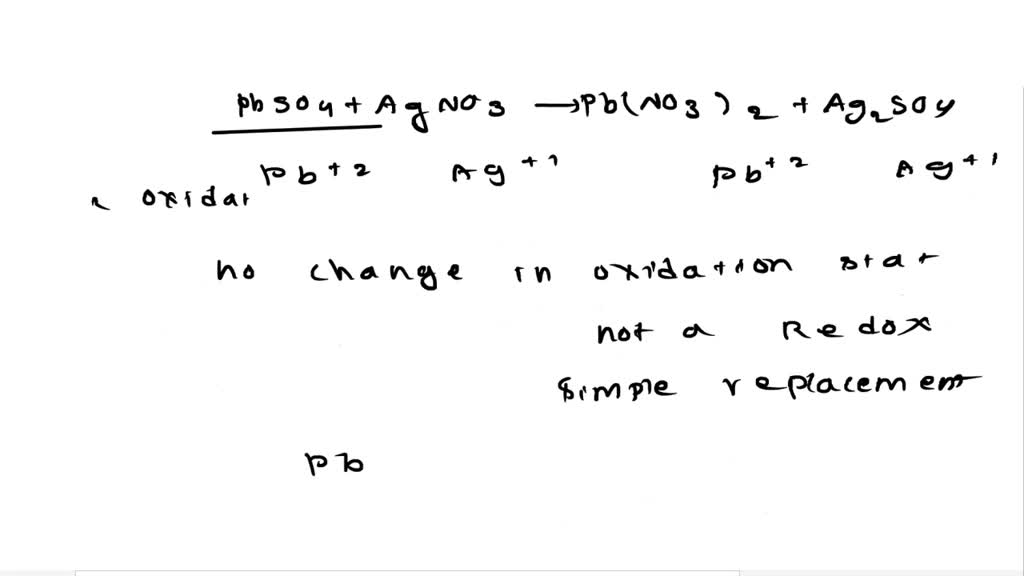 PbSO4 + AgNO3 → Pb(NO3)2 + Ag2SO4
Pb+2 Ag+1 Pb+2 Ag+1
oxidat
no change in oxidation stat
not a Redox
Simple replacement
Pb